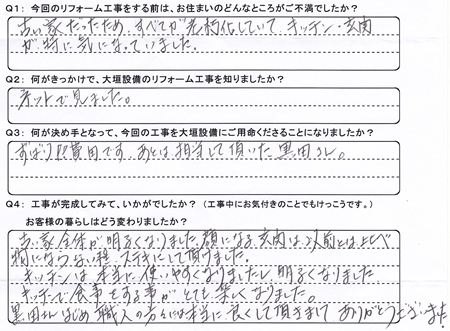 Q1：今回のリフォーム工事をする前は、お住まいのどんなところがご不満でしたか？
古い家だったため、すべてが老朽化していて、キッチン・玄関
が特に気になっていました。
Q2：何がきっかけで、大垣設備のリフォーム工事を知りましたか？
ネットで見ました。
Q3：何が決め手となって、今回の工事を大垣設備にご用命くださることになりましたか？
ずばり!!費用です。あとは、担当して頂いた黒田さん。
Q4：工事が完成してみて、いかがでしたか？（工事中にお気付きのことでもけっこうです。）
お客様の暮らしはどう変わりましたか？
古い家全体が明るくなりました。顔になる玄関は、以前とは比べ
物にならない程、ステキにして頂けました。
キッチンは本当に使いやすくなりましたし、明るくなりました
キッチンで食事をする事がとても楽しくなりました。
黒田さんはじめ職人の方々には本当に良くして頂きまして ありがとうございました